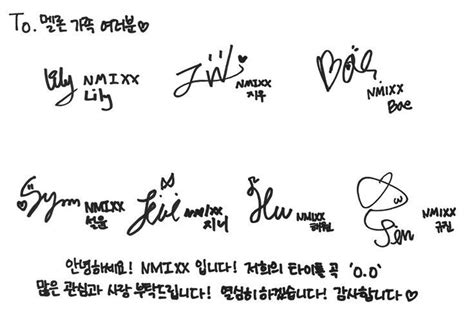 To. 멜론 가족 여러분♡
Lily NMIXX
Lily
NMIXX
지우
Bae
NMIXX
Bae
NMIXX
설윤
NMIXX
지니
NMIXX
해원
NMIXX
규진
안녕하세요! NMIXX 입니다! 저희의 타이틀 곡 'O.O'
많은 관심과 사랑 부탁드립니다! 열심히 하겠습니다! 감사합니다♡